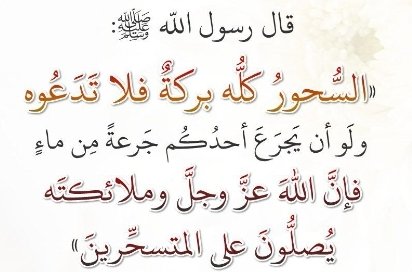 قال رسول الله ﷺ:
«السُّحورُ كلُّه بركةٌ فلا تَدَعُوه
ولَو أن يَجرَعَ أحدُكُم جَرعةً مِن ماءٍ
فإنَّ اللهَ عزَّ وجلَّ وملائكتَه
يُصلُّونَ على المتسحِّرينَ»